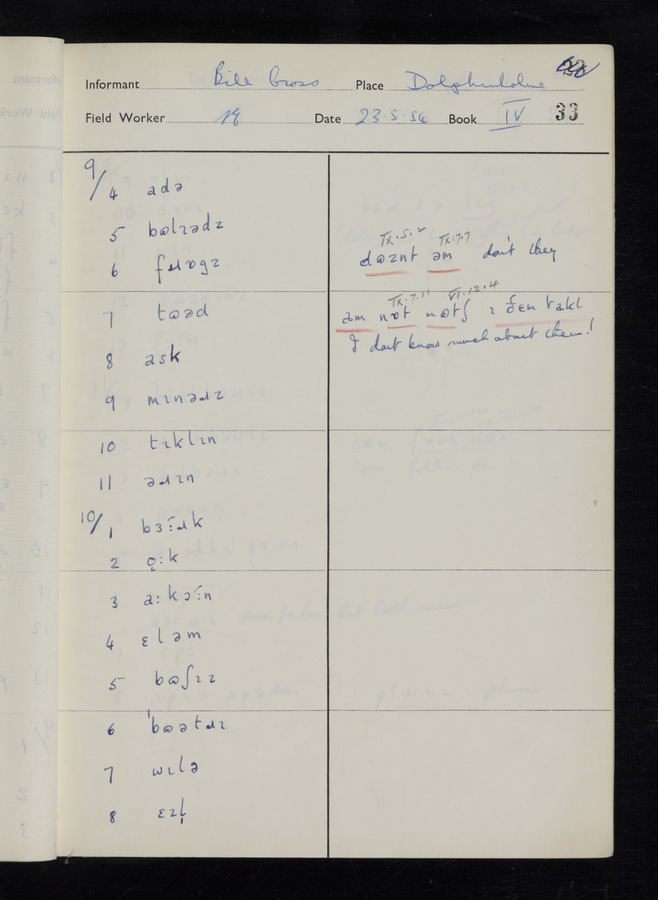 Informant Bill Cross Place Dolphinholme
Field Worker Date 23·5·54 Book IV 33
9/4 adə
5 bɷlɪədz
6 fɹɒgz
7 tɷəd
8 ask
9 mɪnəɹz
10 tɪklɪn
11 əɹɪn
10/1 bɜ:ɹk
2 o̜:k
3 a:kɔ:n
4 ɛləm
5 bɷʃɪz
6 'bɷətɹɪ
7 wɪlə
8 ɛzl̩
IX·5·2 IX·7·7
dɷznt əm don't they
IX·7·11 VI·12·4
am nɒt mɷtʃ ɪ ðɛm takl
I don't know much about them!